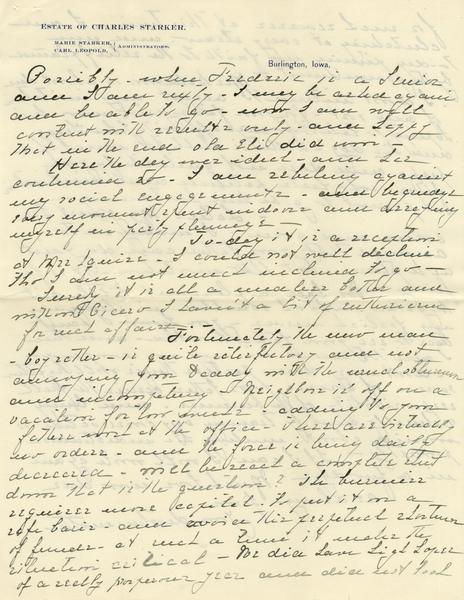 ESTATE OF CHARLES STARKER.
MARIE STARKER,
CARL LEOPOLD, } ADMINISTRATORS.
Burlington, Iowa,
Possibly - when Frederic is a Senior
and I am sixty - I may be asked again
and be able to go - now I am well
content with results only - and happy
that in the end old Eli did won -
Here the day was ideal - and has
continued so - I am rebeling against
my social engagements - and begrudge
every moment spent indoors and arraying
myself in party plumage -
To-day it is a reception
at Mrs Squires - I could not well decline
tho I am not much inclined to go -
Surely it is all a useless bother and
without Cicero I haven't a bit of enthusiasm
for such affairs.
Fortunately the new man
- boy rather - is quite satisfactory and not
annoying your Daddy with the usual
and incompetency - Neighbor is off on a
vacation for two weeks - adding to your
fathers work at the office - There are virtually
no orders - and the force is being daily
decreased - will be need a complete shut
down that is the question? The business
requires more capital to put it on a
safe basis - and avoid this perpetual shortness
of funds - at such a time it makes the
situation critical - We did have high hopes
of a really prosperous year and did not look